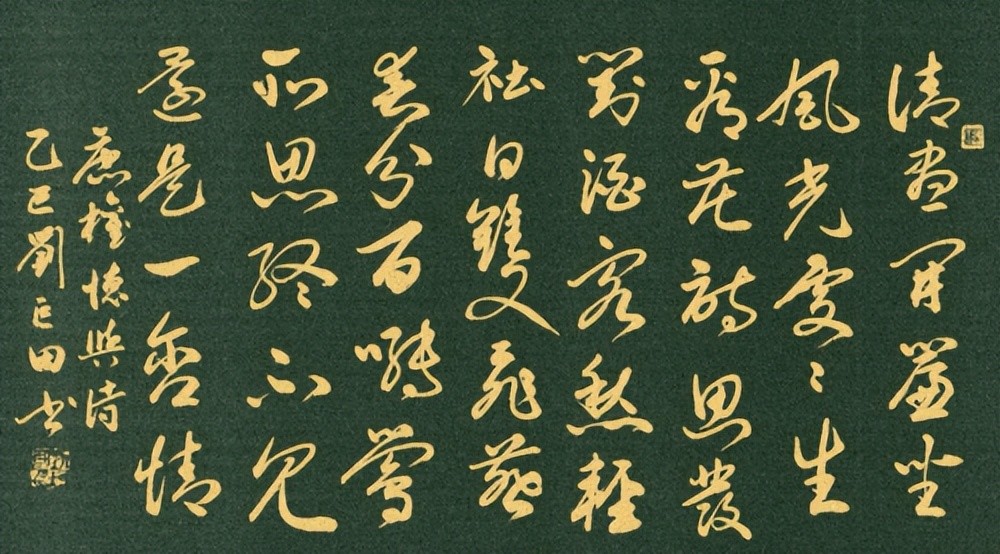 清晝開簾坐
風光處々生
看花詩思發
對酒客愁輕
社日雙飛燕
春分百囀鶯
所思終不見
還是一含情
唐權德輿詩
乙巳劉巨田書